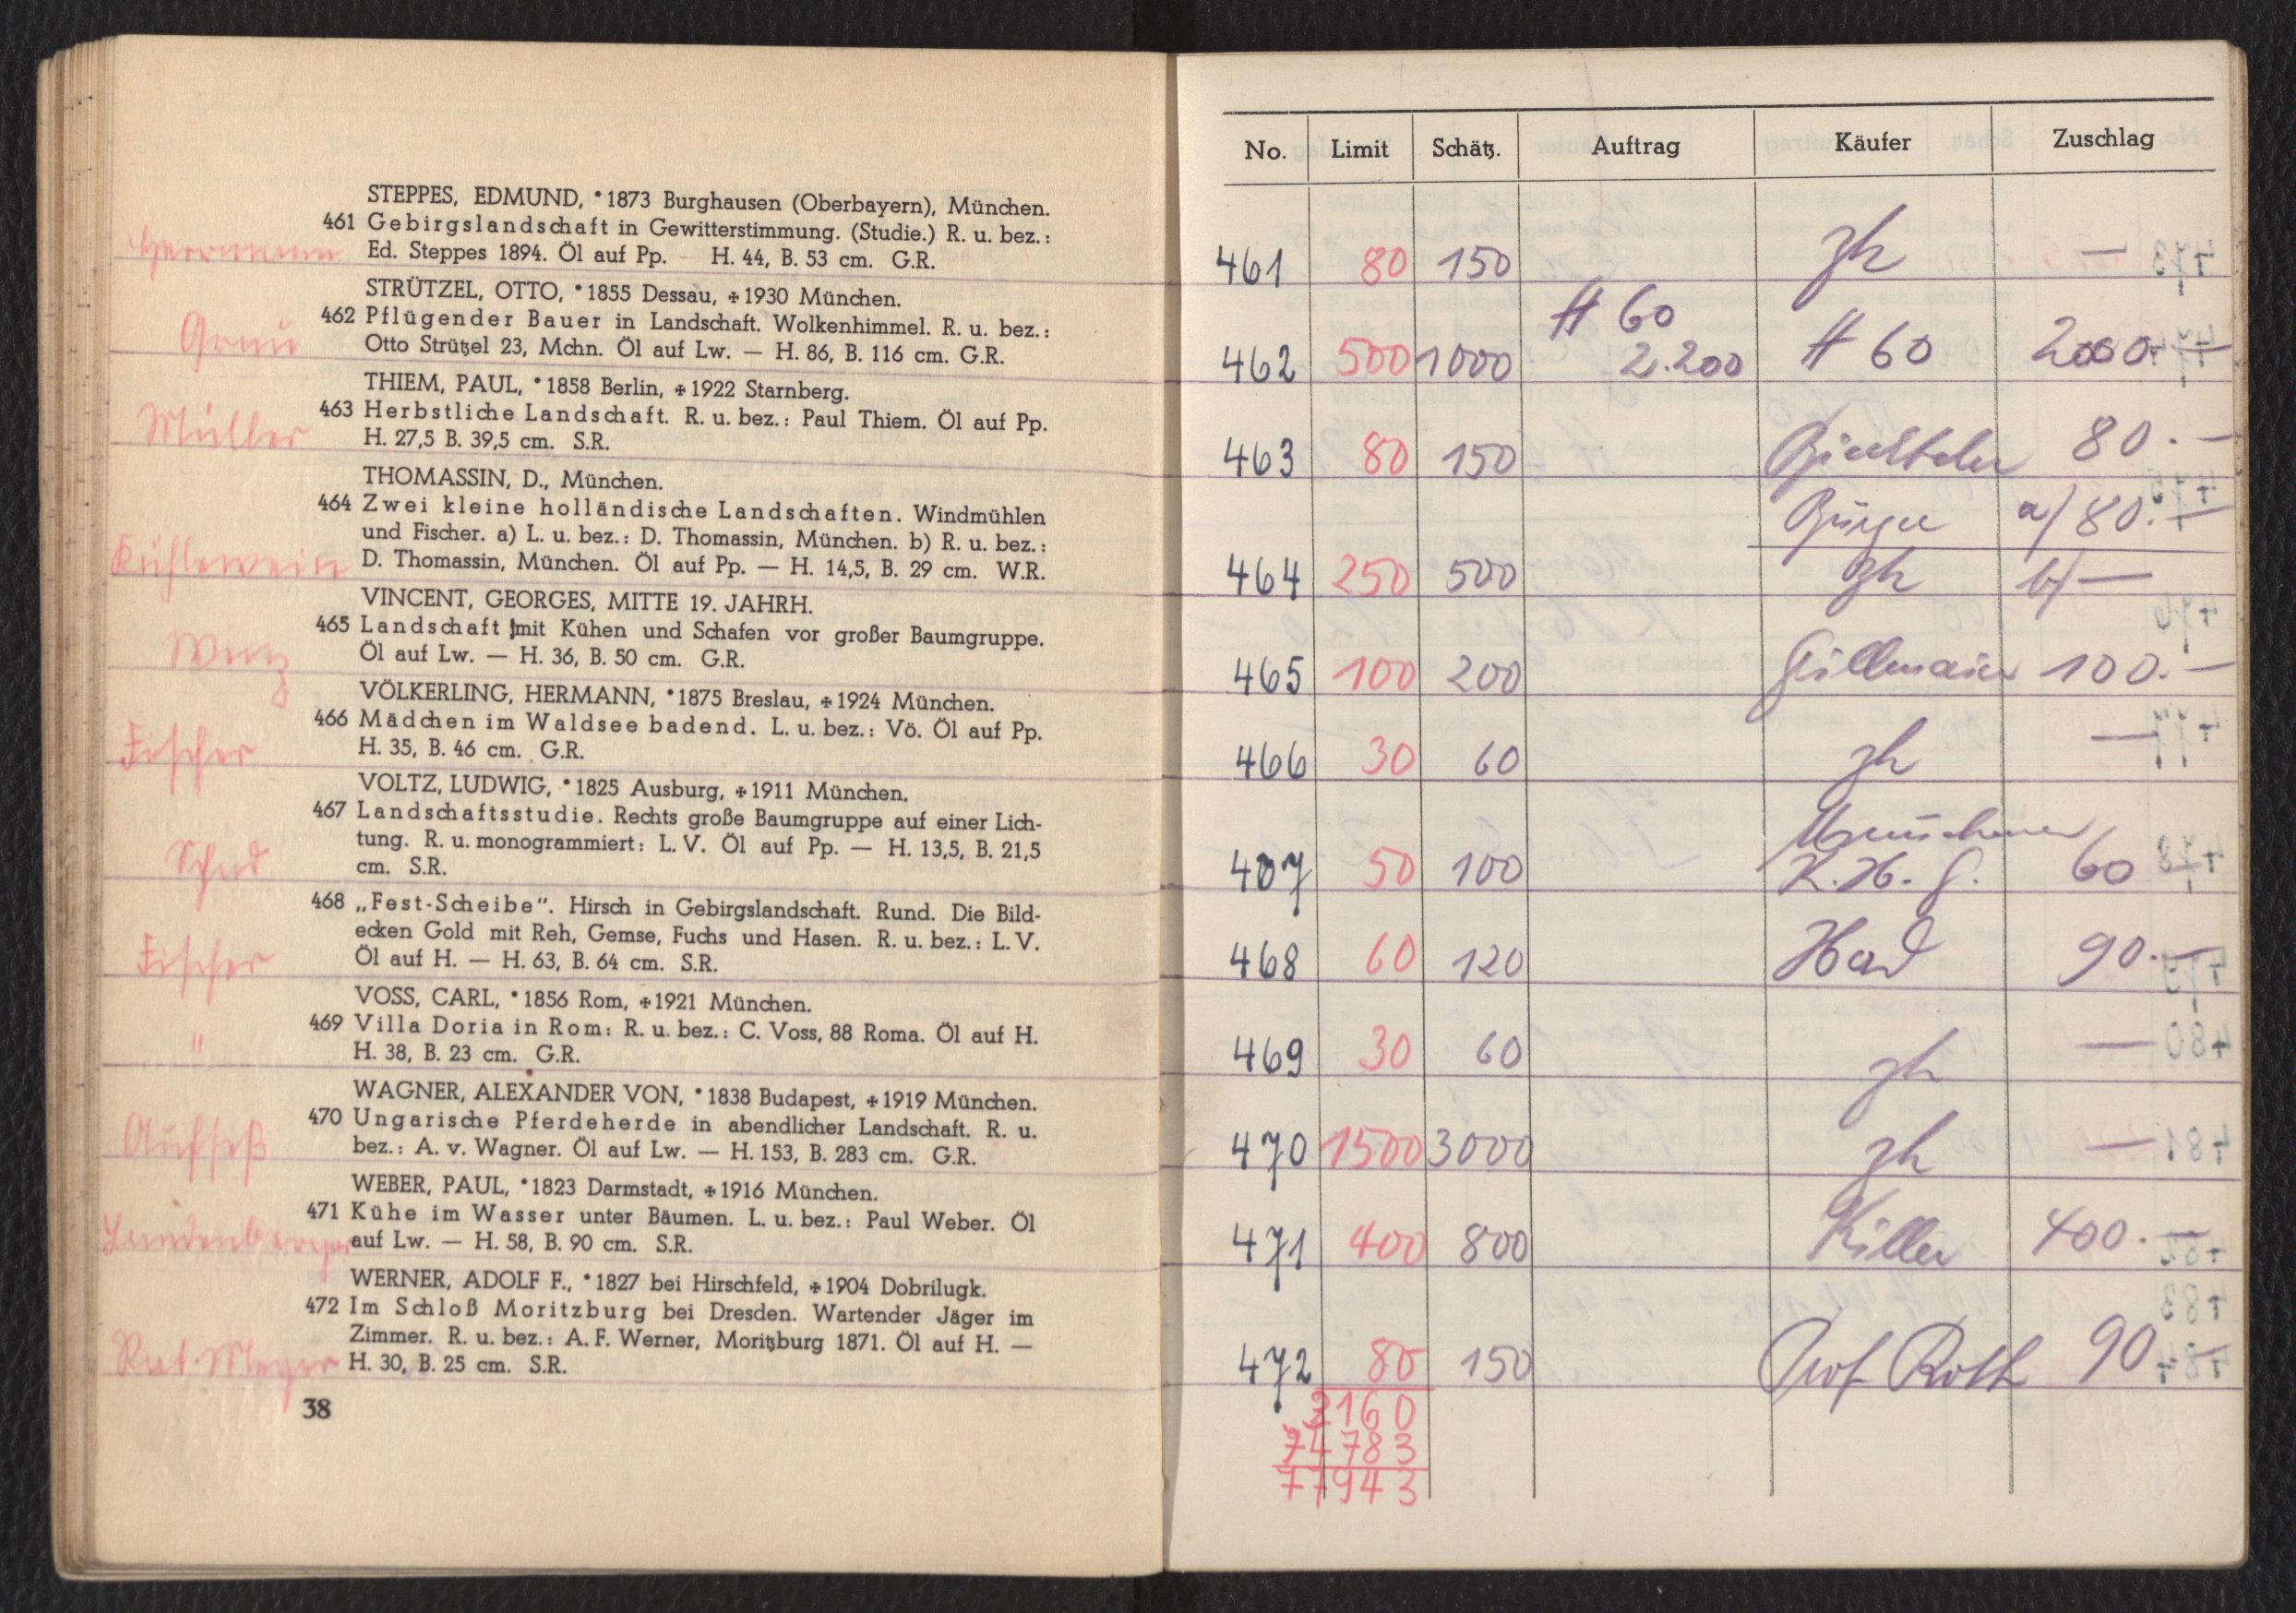 STEPPES, EDMUND, *1873 Burghausen (Oberbayern), München.
461 Gebirgslandschaft in Gewitterstimmung. (Studie.) R. u. bez.:
Herrmann Ed. Steppes 1894. Öl auf Pp. – H. 44, B. 53 cm. G.R.
STRÜTZEL, OTTO, *1855 Dessau, +1930 München.
462 Pflügender Bauer in Landschaft. Wolkenhimmel. R. u. bez.:
Grau Otto Strützel 23, Mchn. Öl auf Lw. — H. 86, B. 116 cm. G.R.
THIEM, PAUL, *1858 Berlin, +1922 Starnberg.
463 Herbstliche Landschaft. R. u. bez.: Paul Thiem. Öl auf Pp.
Müller H. 27,5 B. 39,5 cm. S.R.
THOMASSIN, D., München.
464 Zwei kleine holländische Landschaften. Windmühlen
und Fischer. a) L. u. bez.: D. Thomassin, München. b) R. u. bez.:
Kühlewein D. Thomassin, München. Öl auf Pp. — H. 14,5, B. 29 cm. W.R.
VINCENT, GEORGES, MITTE 19. JAHRH.
465 Landschaft mit Kühen und Schafen vor großer Baumgruppe.
Wenz Öl auf Lw. — H. 36, B. 50 cm. G.R.
VÖLKERLING, HERMANN, *1875 Breslau, +1924 München.
466 Mädchen im Waldsee badend. L. u. bez.: Vö. Öl auf Pp.
Fischer H. 35, B. 46 cm. G.R.
VOLTZ, LUDWIG, *1825 Ausburg, +1911 München.
467 Landschaftsstudie. Rechts große Baumgruppe auf einer Lich-
tung. R. u. monogrammiert: L. V. Öl auf Pp. — H. 13,5, B. 21,5
Schad cm. S.R.
468 „Fest-Scheibe“. Hirsch in Gebirgslandschaft. Rund. Die Bild-
ecken Gold mit Reh, Gemse, Fuchs und Hasen. R. u. bez.: L. V.
Fischer Öl auf H. — H. 63, B. 64 cm. S.R.
VOSS, CARL, *1856 Rom, +1921 München.
469 Villa Doria in Rom: R. u. bez.: C. Voss, 88 Roma. Öl auf H.
" H. 38, B. 23 cm. G.R.
WAGNER, ALEXANDER VON, *1838 Budapest, +1919 München.
470 Ungarische Pferdeherde in abendlicher Landschaft. R. u.
Aufseß bez.: A. v. Wagner. Öl auf Lw. — H. 153, B. 283 cm. G.R.
WEBER, PAUL, *1823 Darmstadt, +1916 München.
471 Kühe im Wasser unter Bäumen. L. u. bez.: Paul Weber. Öl
auf Lw. — H. 58, B. 90 cm. S.R.
WERNER, ADOLF F., *1827 bei Hirschfeld, +1904 Dobrilugk.
472 Im Schloß Moritzburg bei Dresden. Wartender Jäger im
Zimmer. R. u. bez.: A. F. Werner, Moritzburg 1871. Öl auf H. —
Rat. Mayer H. 30, B. 25 cm. S.R.
38
No. Limit Schätz. Auftrag Käufer Zuschlag
461 80 150 zh —
# 60
462 500 1000 2.200 # 60 2000.—
463 80 150 80.—
Bürger a) 80.—
464 250 500 zh b) —
465 100 200 Gillmaier 100.—
466 30 60 zh —
Münchener
467 50 100 K. H. G. 60
468 60 120 Had 90.—
469 30 60 zh —
470 1500 3000 zh —
471 400 800 Killer 400.—
472 80 150 Prof Roth 90.—
3160
74783
77943